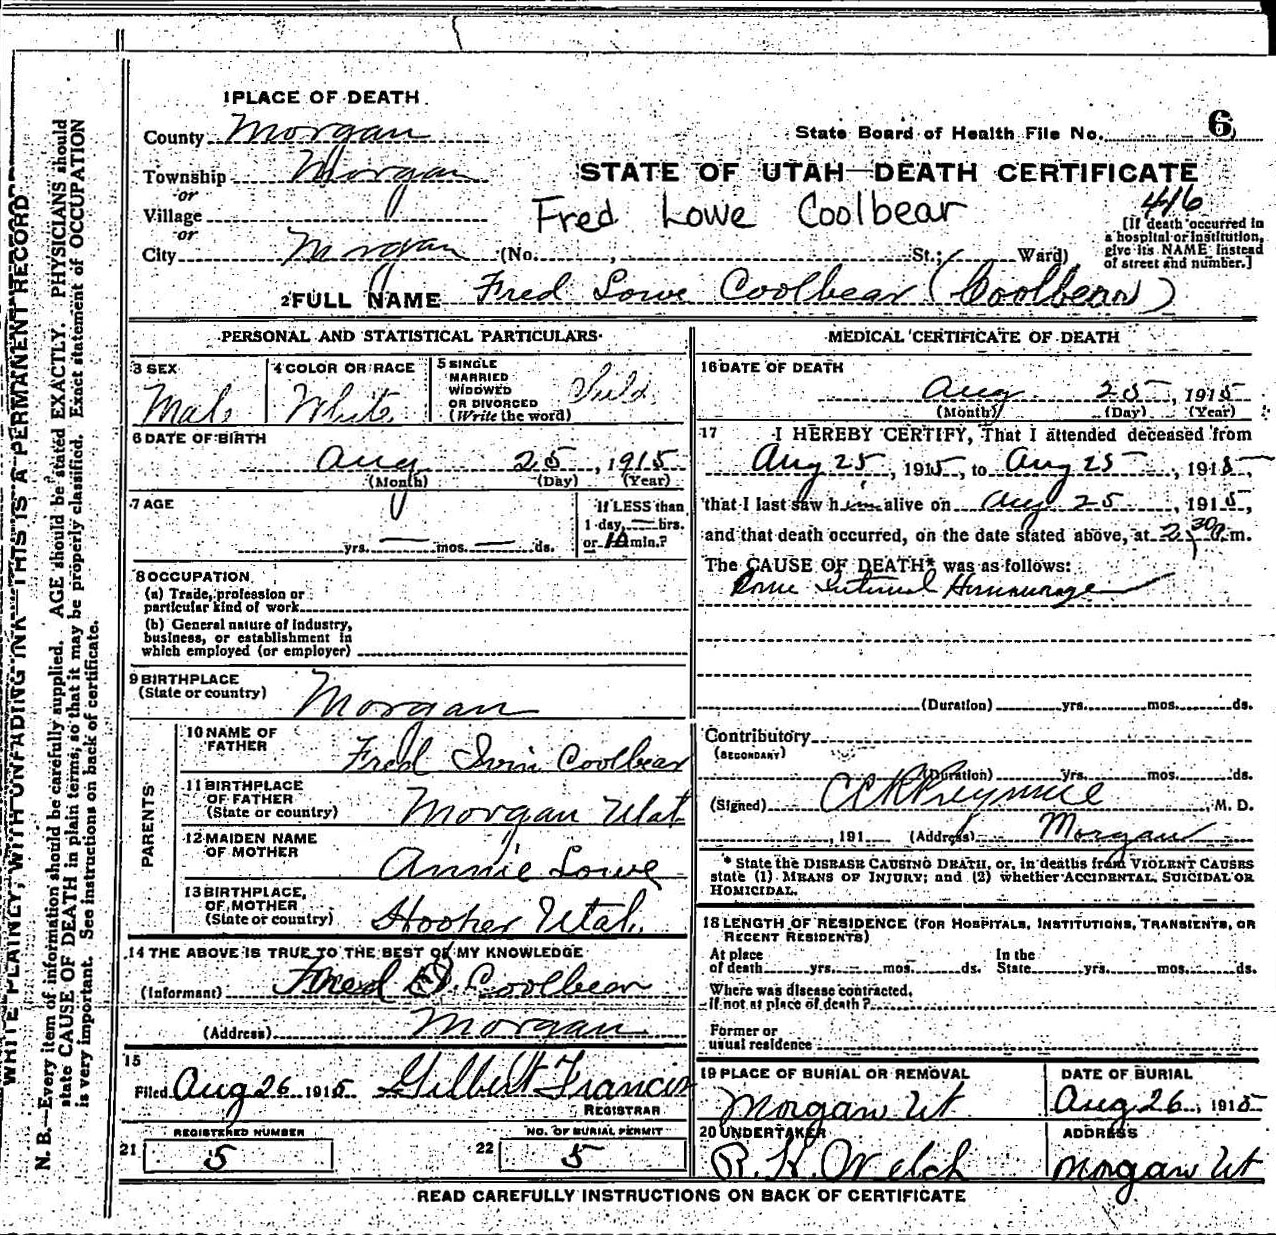 1 PLACE OF DEATH
County Morgan
State Board of Health File No. 6
Township Morgan
or
Village
or
City Morgan (No. , St.; Ward)
STATE OF UTAH—DEATH CERTIFICATE
416
Fred Lowe Coolbear
[If death occurred in
a hospital or institution,
give its NAME instead
of street and number.]
2 FULL NAME Fred Lowe Coolbear (Coolbear)
PERSONAL AND STATISTICAL PARTICULARS
3 SEX
Male
4 COLOR OR RACE
White
5 SINGLE
MARRIED
WIDOWED
OR DIVORCED
(Write the word)
Child
6 DATE OF BIRTH
Aug 25, 1915
(Month) (Day) (Year)
7 AGE
yrs. — mos. — ds.
If LESS than
1 day, — hrs.
or 10 min.?
8 OCCUPATION
(a) Trade, profession or
particular kind of work
(b) General nature of industry,
business, or establishment in
which employed (or employer)
9 BIRTHPLACE
(State or country) Morgan
PARENTS
10 NAME OF
FATHER Fred Coolbear
11 BIRTHPLACE
OF FATHER
(State or country) Morgan Utah
12 MAIDEN NAME
OF MOTHER Annie Lowe
13 BIRTHPLACE
OF MOTHER
(State or country) Hooper Utah
14 THE ABOVE IS TRUE TO THE BEST OF MY KNOWLEDGE
(Informant) Fred Coolbear
(Address) Morgan
15
Filed Aug 26 1915 Gilbert Francis
REGISTRAR
21 REGISTERED NUMBER
5
22 NO. OF BURIAL PERMIT
5
MEDICAL CERTIFICATE OF DEATH
16 DATE OF DEATH
Aug 25, 1915
(Month) (Day) (Year)
17 I HEREBY CERTIFY, That I attended deceased from
Aug 25, 1915, to Aug 25, 1915,
that I last saw him alive on Aug 25, 1915,
and that death occurred, on the date stated above, at 2:30 m.
The CAUSE OF DEATH* was as follows:
Some Internal Hemmorage
(Duration) yrs. mos. ds.
Contributory
(SECONDARY)
(Duration) yrs. mos. ds.
(Signed) , M. D.
, 191 (Address) Morgan
* State the DISEASE CAUSING DEATH, or, in deaths from VIOLENT CAUSES
state (1) MEANS OF INJURY; and (2) whether ACCIDENTAL, SUICIDAL OR
HOMICIDAL.
18 LENGTH OF RESIDENCE (FOR HOSPITALS, INSTITUTIONS, TRANSIENTS, OR
RECENT RESIDENTS)
At place
of death yrs. mos. ds.
In the
State yrs. mos. ds.
Where was disease contracted,
if not at place of death?
Former or
usual residence
19 PLACE OF BURIAL OR REMOVAL
Morgan Ut
DATE OF BURIAL
Aug 26, 1915
20 UNDERTAKER
R. H. Welch
ADDRESS
Morgan Ut
READ CAREFULLY INSTRUCTIONS ON BACK OF CERTIFICATE
WRITE PLAINLY, WITH UNFADING INK—THIS IS A PERMANENT RECORD
N. B.—Every item of information should be carefully supplied. AGE should be stated EXACTLY. PHYSICIANS should
state CAUSE OF DEATH in plain terms, so that it may be properly classified. Exact statement of OCCUPATION
is very important. See instructions on back of certificate.